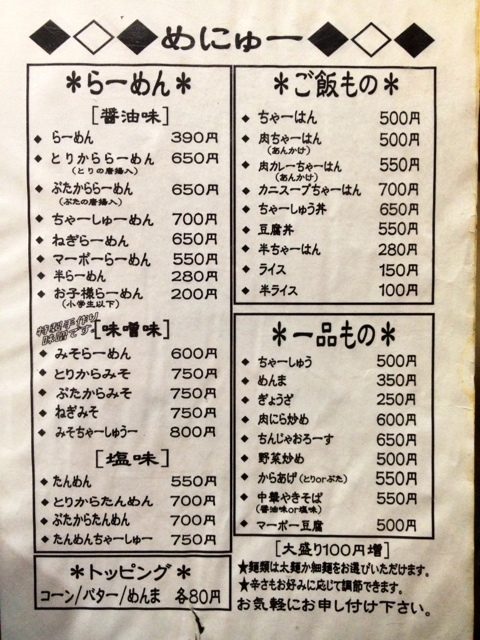 めにゅー
＊らーめん＊
[醤油味]
◆ らーめん 390円
◆ とりかららーめん 650円
(とりの唐揚入)
◆ ぶたかららーめん 650円
(ぶたの唐揚入)
◆ ちゃーしゅーめん 700円
◆ ねぎらーめん 650円
◆ マーボーらーめん 550円
◆ 半らーめん 280円
◆ お子様らーめん 200円
(小学生以下)
特製手作り
味噌です。
[味噌味]
◆ みそらーめん 600円
◆ とりからみそ 750円
◆ ぶたからみそ 750円
◆ ねぎみそ 750円
◆ みそちゃーしゅうー 800円
[塩味]
◆ たんめん 550円
◆ とりからたんめん 700円
◆ ぶたからたんめん 700円
◆ たんめんちゃーしゅー 750円
＊トッピング＊
コーン/バター/めんま 各80円
＊ご飯もの＊
◆ ちゃーはん 500円
◆ 肉ちゃーはん 500円
(あんかけ)
◆ 肉カレーちゃーはん 550円
(あんかけ)
◆ カニスープちゃーはん 700円
◆ ちゃーしゅう丼 650円
◆ 豆腐丼 550円
◆ 半ちゃーはん 280円
◆ ライス 150円
◆ 半ライス 100円
＊一品もの＊
◆ ちゃーしゅう 500円
◆ めんま 350円
◆ ぎょうざ 250円
◆ 肉にら炒め 600円
◆ ちんじゃおろーす 650円
◆ 野菜炒め 500円
◆ からあげ(とりorぶた) 550円
◆ 中華やきそば 550円
(醤油味or塩味)
◆ マーボー豆腐 500円
[大盛り100円増]
★麺類は太麺か細麺をお選びいただけます。
★辛さもお好みに応じて調節できます。
お気軽にお申し付け下さい。